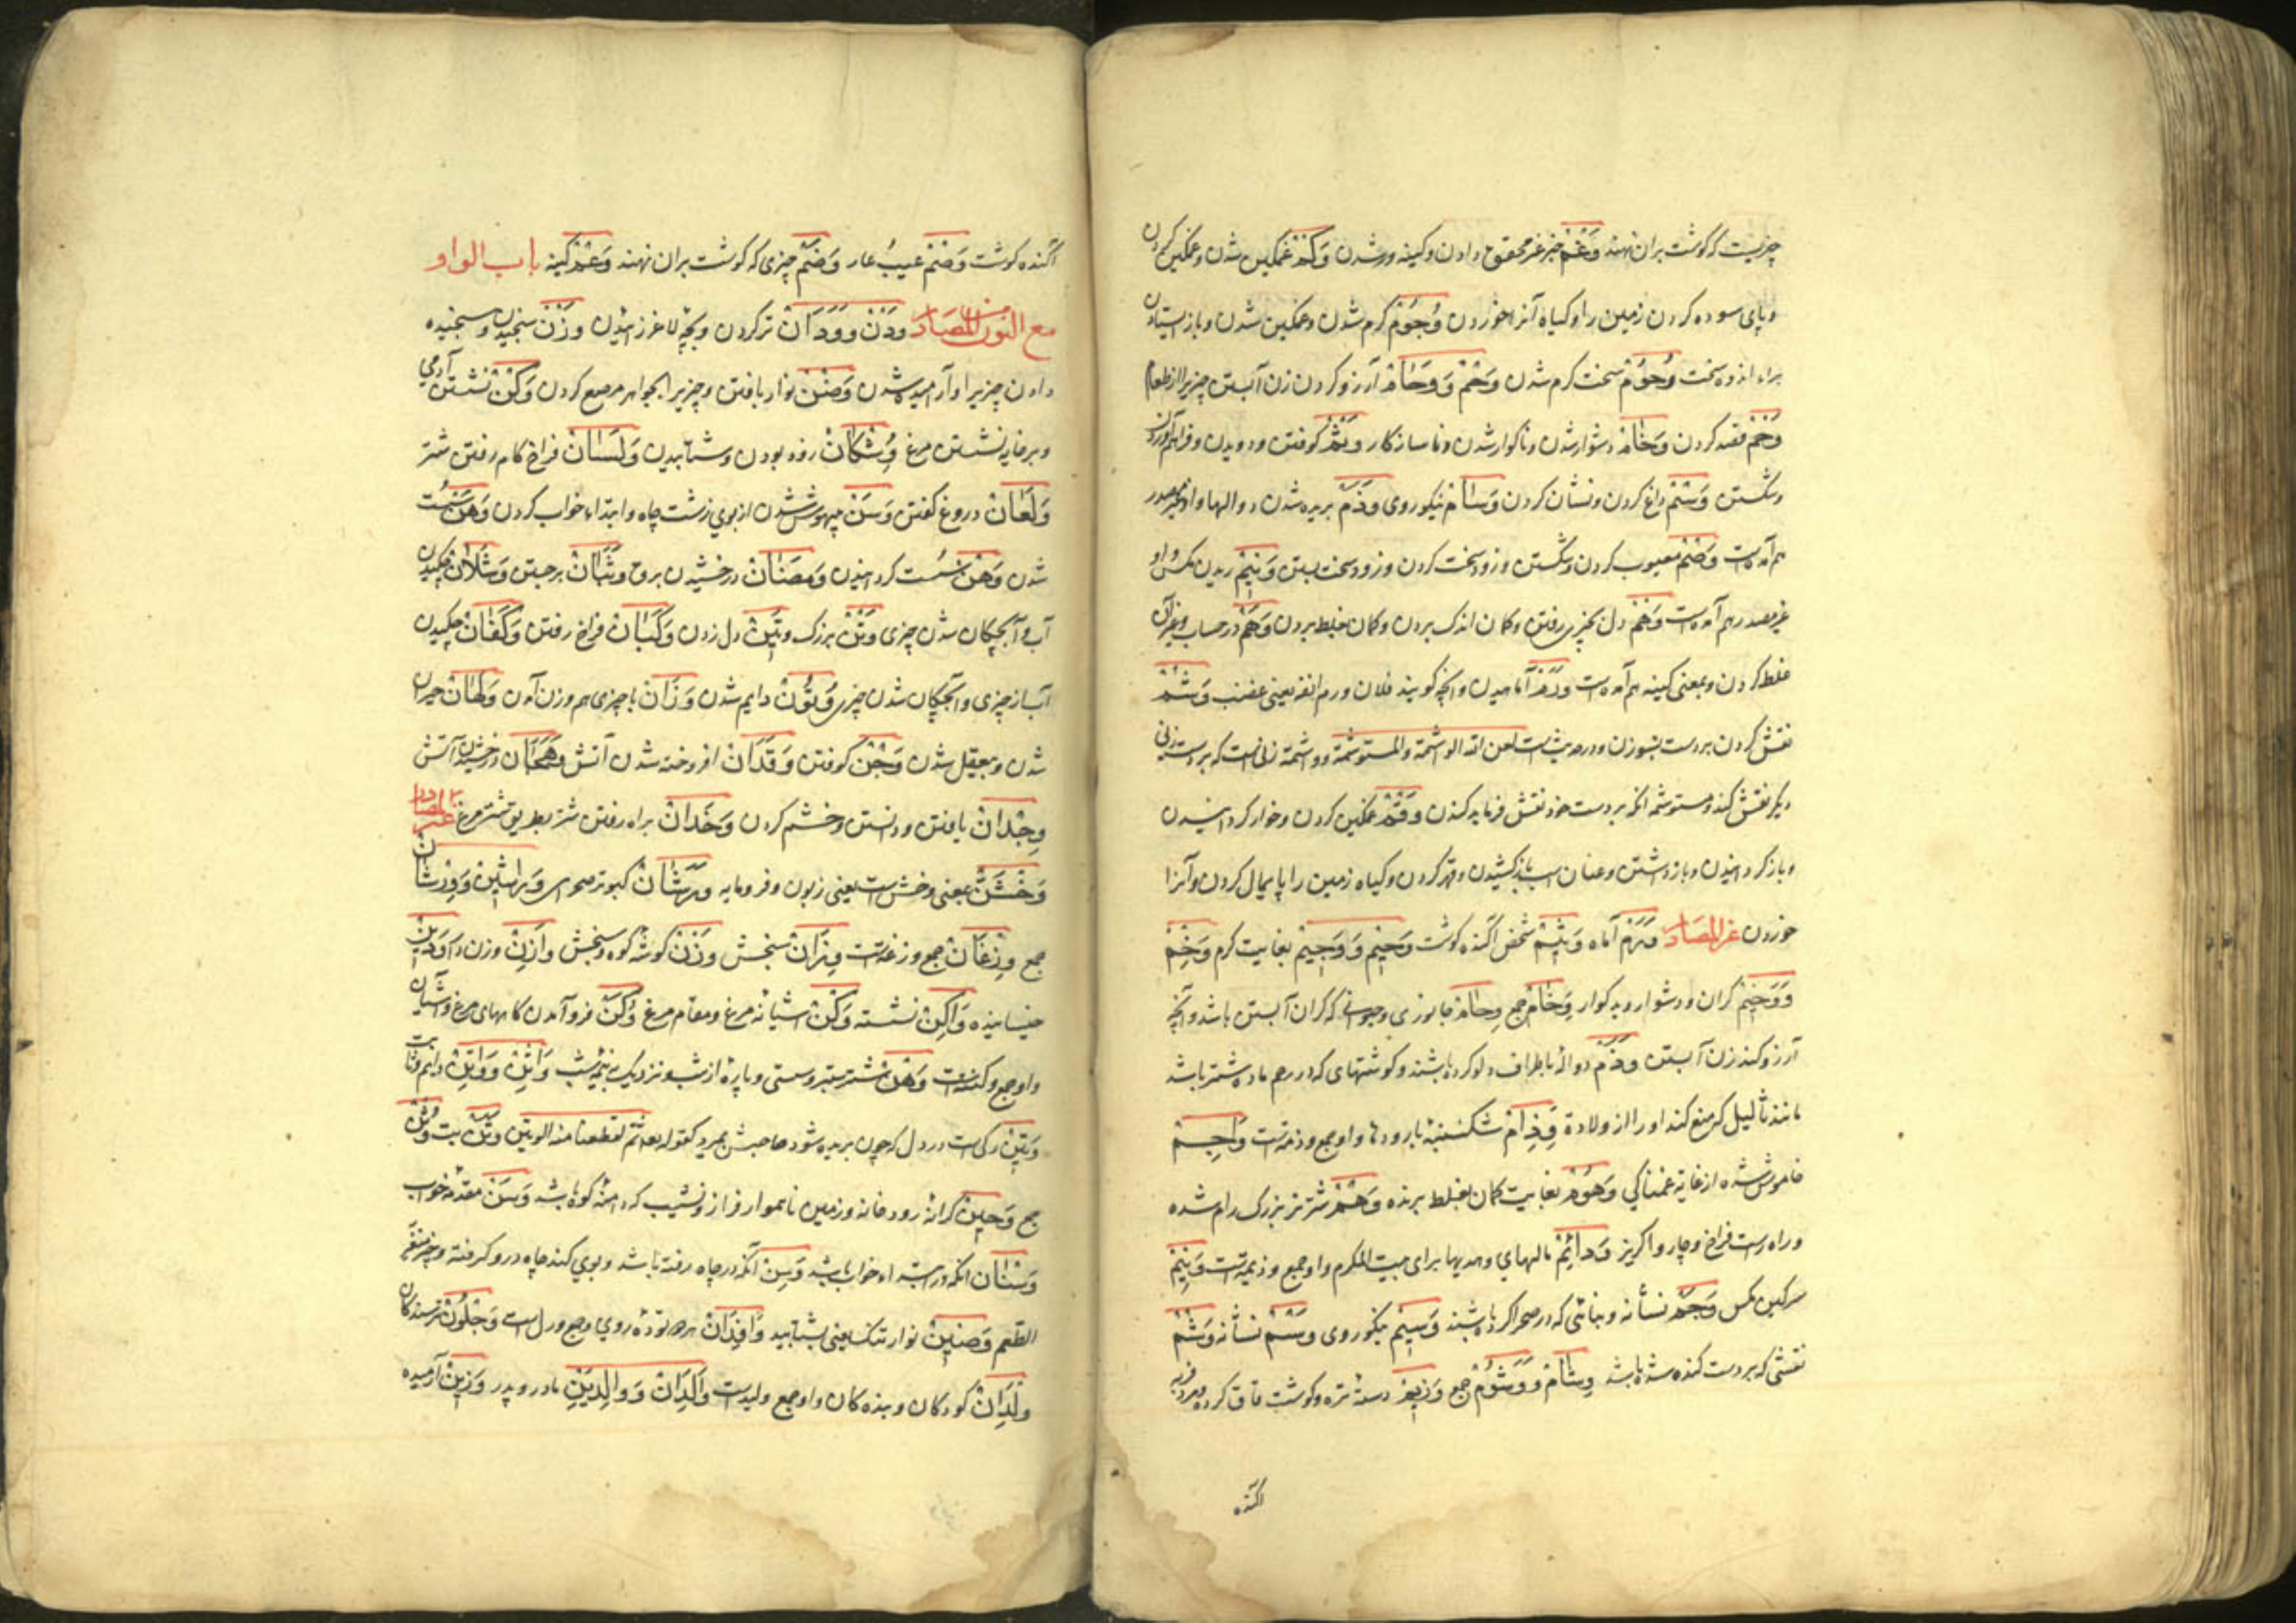 چیزیست که کوشت بران نهند وَغْم خبر غیر محقق دادن و کینه ور شدن وَکْم غمکین شدن و غمکین کردن
و پای سوده کردن زمین را و کیاه آنرا خوردن وُجُوْم کرم شدن و غمکین شدن و باز ایستادن
براء اندوه سخت وُحُوْم سخت کرم شدن وَحَمْ وَ وِحَامْ آرزو کردن زن آبستن چیزیرا از طعام
وَخْم قصد کردن وَخَامَة دشوار شدن و ناکوار شدن و ناسازکار وَثْم کوفتن و دویدن و فراهم آوردن
و شکستن وَسْم داغ کردن و نشان کردن وَسَامْ نیکوروی وَذَم بریده شدن دوالها و از غیر مصدر
هم آمده است وَصْم معیوب کردن و شکستن و زود سخت کردن و زود سخت بستن وَنِیْم ریدن مکس و او
غیر مصدر هم آمده است وَهْم دل بچیزی رفتن و کمان اندک بردن و کمان غلط بردن وَهَم در حساب و غیر آن
غلط کردن و بمعنی کینه هم آمده است وَرَم آماهیدن و آنچه کویند فلان ورم انفه یعنی غضب وَشْم
نقش کردن بر دست بسوزن و در حدیث است لعن الله الواشمة والمستوشمة و واشمة زنی است که بر دست زنی
دیکر نقش کند و مستوشمه انکه بر دست خود نقش فرماید کندن وَقْم غمکین کردن و خوار کردانیدن
و باز کردانیدن و باز داشتن و عنان اسب باز کشیدن و قهر کردن و کیاه زمین را پایمال کردن و آنرا
خوردن غیر المصادر وَرَم آماه وَثِیْم شخص اکنده کوشت وَحِیْم وَ وَجِیْم بغایت کرم وَخِمْ
وَ وَخِیْم کران و دشوار و بد کوار وِخَام جمع وِحَام جانوری و حیوانی که کران آبستن باشد و آنچه
آرزو کند زن آبستن وَذَم دوالها باطراف دلو کرده باشند و کوشتهای که در رحم ماده شتر باشد
مانند ثالیل که منع کند او را از ولادة وِذَام شکنبه با رودها و او جمع وذمة است وَاجِمْ
خاموش شده از غایة غمناکی وَهُوْم بغایت کمان بغلط برنده وَهْم شتر نر بزرک رام شده
و راه راست فراخ و چاروا کریز وَذَائِم مالهای و هدیها برای بیت المکرم و او جمع وذیمة است وَنِیْم
سرکین مکس وَجَم نشانه و بنائی که در صحرا کرده باشند وَسِیْم نیکوروی وَسْم نشانه وَشْم
نقشی که بر دست کنده شده باشد وِشَامْ وَ وُشُوْم جمع وَزِیْم دسته تره و کوشت قاق کرده و مرد فربه
اکنده
اکنده کوشت وَصْم عیب و عار وَضَم چیزی که کوشت بران نهند وَغْم کینه باب الواو
مع النون من المصادر وَدْن وَ وِدَانْ تر کردن و بچه لاغر زائیدن وَزْن سنجیدن و سنجیده
دادن چیزیرا و آرامیده شدن وَضْن نوار بافتن و چیزیرا بجواهر مرصع کردن وَکْن نشستن آدمی
و بر خایه نشستن مرغ وُشْکَان زود بودن و شتابیدن وَلَسَان فراخ کام رفتن شتر
وَلَعَانْ دروغ کفتن وَسَن بیهوش شدن از بوی زشت چاه و ابتداء خواب کردن وَهْن سست
شدن وَهْن سست کردانیدن وَمَضَانْ درخشیدن برق وَثَبَانْ برجستن وَشَلَانْ چکیدن
آب و آبچکان شدن چیزی وَتْن بزرک وَتِیْن دل زدن وَکَبَان فراخ رفتن وَکَفَان چکیدن
آب از چیزی و آبچکان شدن چیزی وُتُوْن دایم شدن وَزَان با چیزی هم وزن آمدن وَلَهَان حیران
شدن و بیعقل شدن وَجْن کوفتن وَقَدَان افروخته شدن آتش وَهَجَان درخشیدن آتش
وِجْدَانْ یافتن و دانستن و خشم کردن وَخَدَانْ براه رفتن شتر بطریق شترمرغ غیر المصادر
وَخْشَن بمعنی وخش است یعنی زبون و فرومایه وَرَشَانْ کبوتر صحرای وَرَاشِیْن وَ وِرْشَانْ
جمع وِزْغَانْ جمع وزغة است وِزَانْ سنجش وَزْن کوشه کوه و سنجش وَازِنْ وزن دار وَدِیْن
خیسانیده وَاکِنْ نشسته وَکْن اشیانه مرغ و مقام مرغ وُکُن فرو آمدن کاههای مرغ و آشیان
و او جمع وکنة است وَهْن شتر ستبر و سستی و پاره از شب و نزدیک بنیم شب وَاثِنْ وَ وَاتِنْ دایم و ثابت
وَتِیْن رکی است در دل که چون بریده شود صاحبش بمیرد کقوله تعالی ثم لقطعنا منه الوتین وَثَن بت وُثْن
جمع وَجِیْن کرانه رودخانه و زمین ناهموار فراز و نشیب که دامنه کوه باشد وَسَن مقدمه خواب
وَسْنَان انکه در ابتداء خواب باشد وَسِنْ آنکه در چاه رفته باشد و بوی کند چاه درو کرفته و چیز متغیر
الطعم وَضِیْن نوار تنک یعنی بشتابید وَافِدَانْ هر دو توده روی و جمع ورل است وَجِلُوْن ترسندکان
وِلْدَانْ کودکان و بنده کان و او جمع ولید است وَالِدَانْ وَ وَالِدَیْنِ مادر و پدر وَزِیْن آرمیده